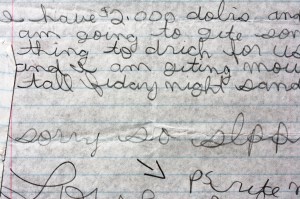 I have $2.000 dolis and
am going to gite som
thing to druch for us
and I am giting mou
tall fiday night sand
sorry so slopp
Love
PS rite m